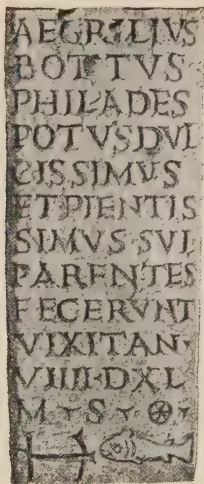 AEGRILIVS
BOTTVS
PHILADES
POTVS DVL
CISSIMVS
ET PIENTIS
SIMVS SVI
PARENTES
FECERVNT
VIXIT AN·
VIIII·D XL
M · S ·